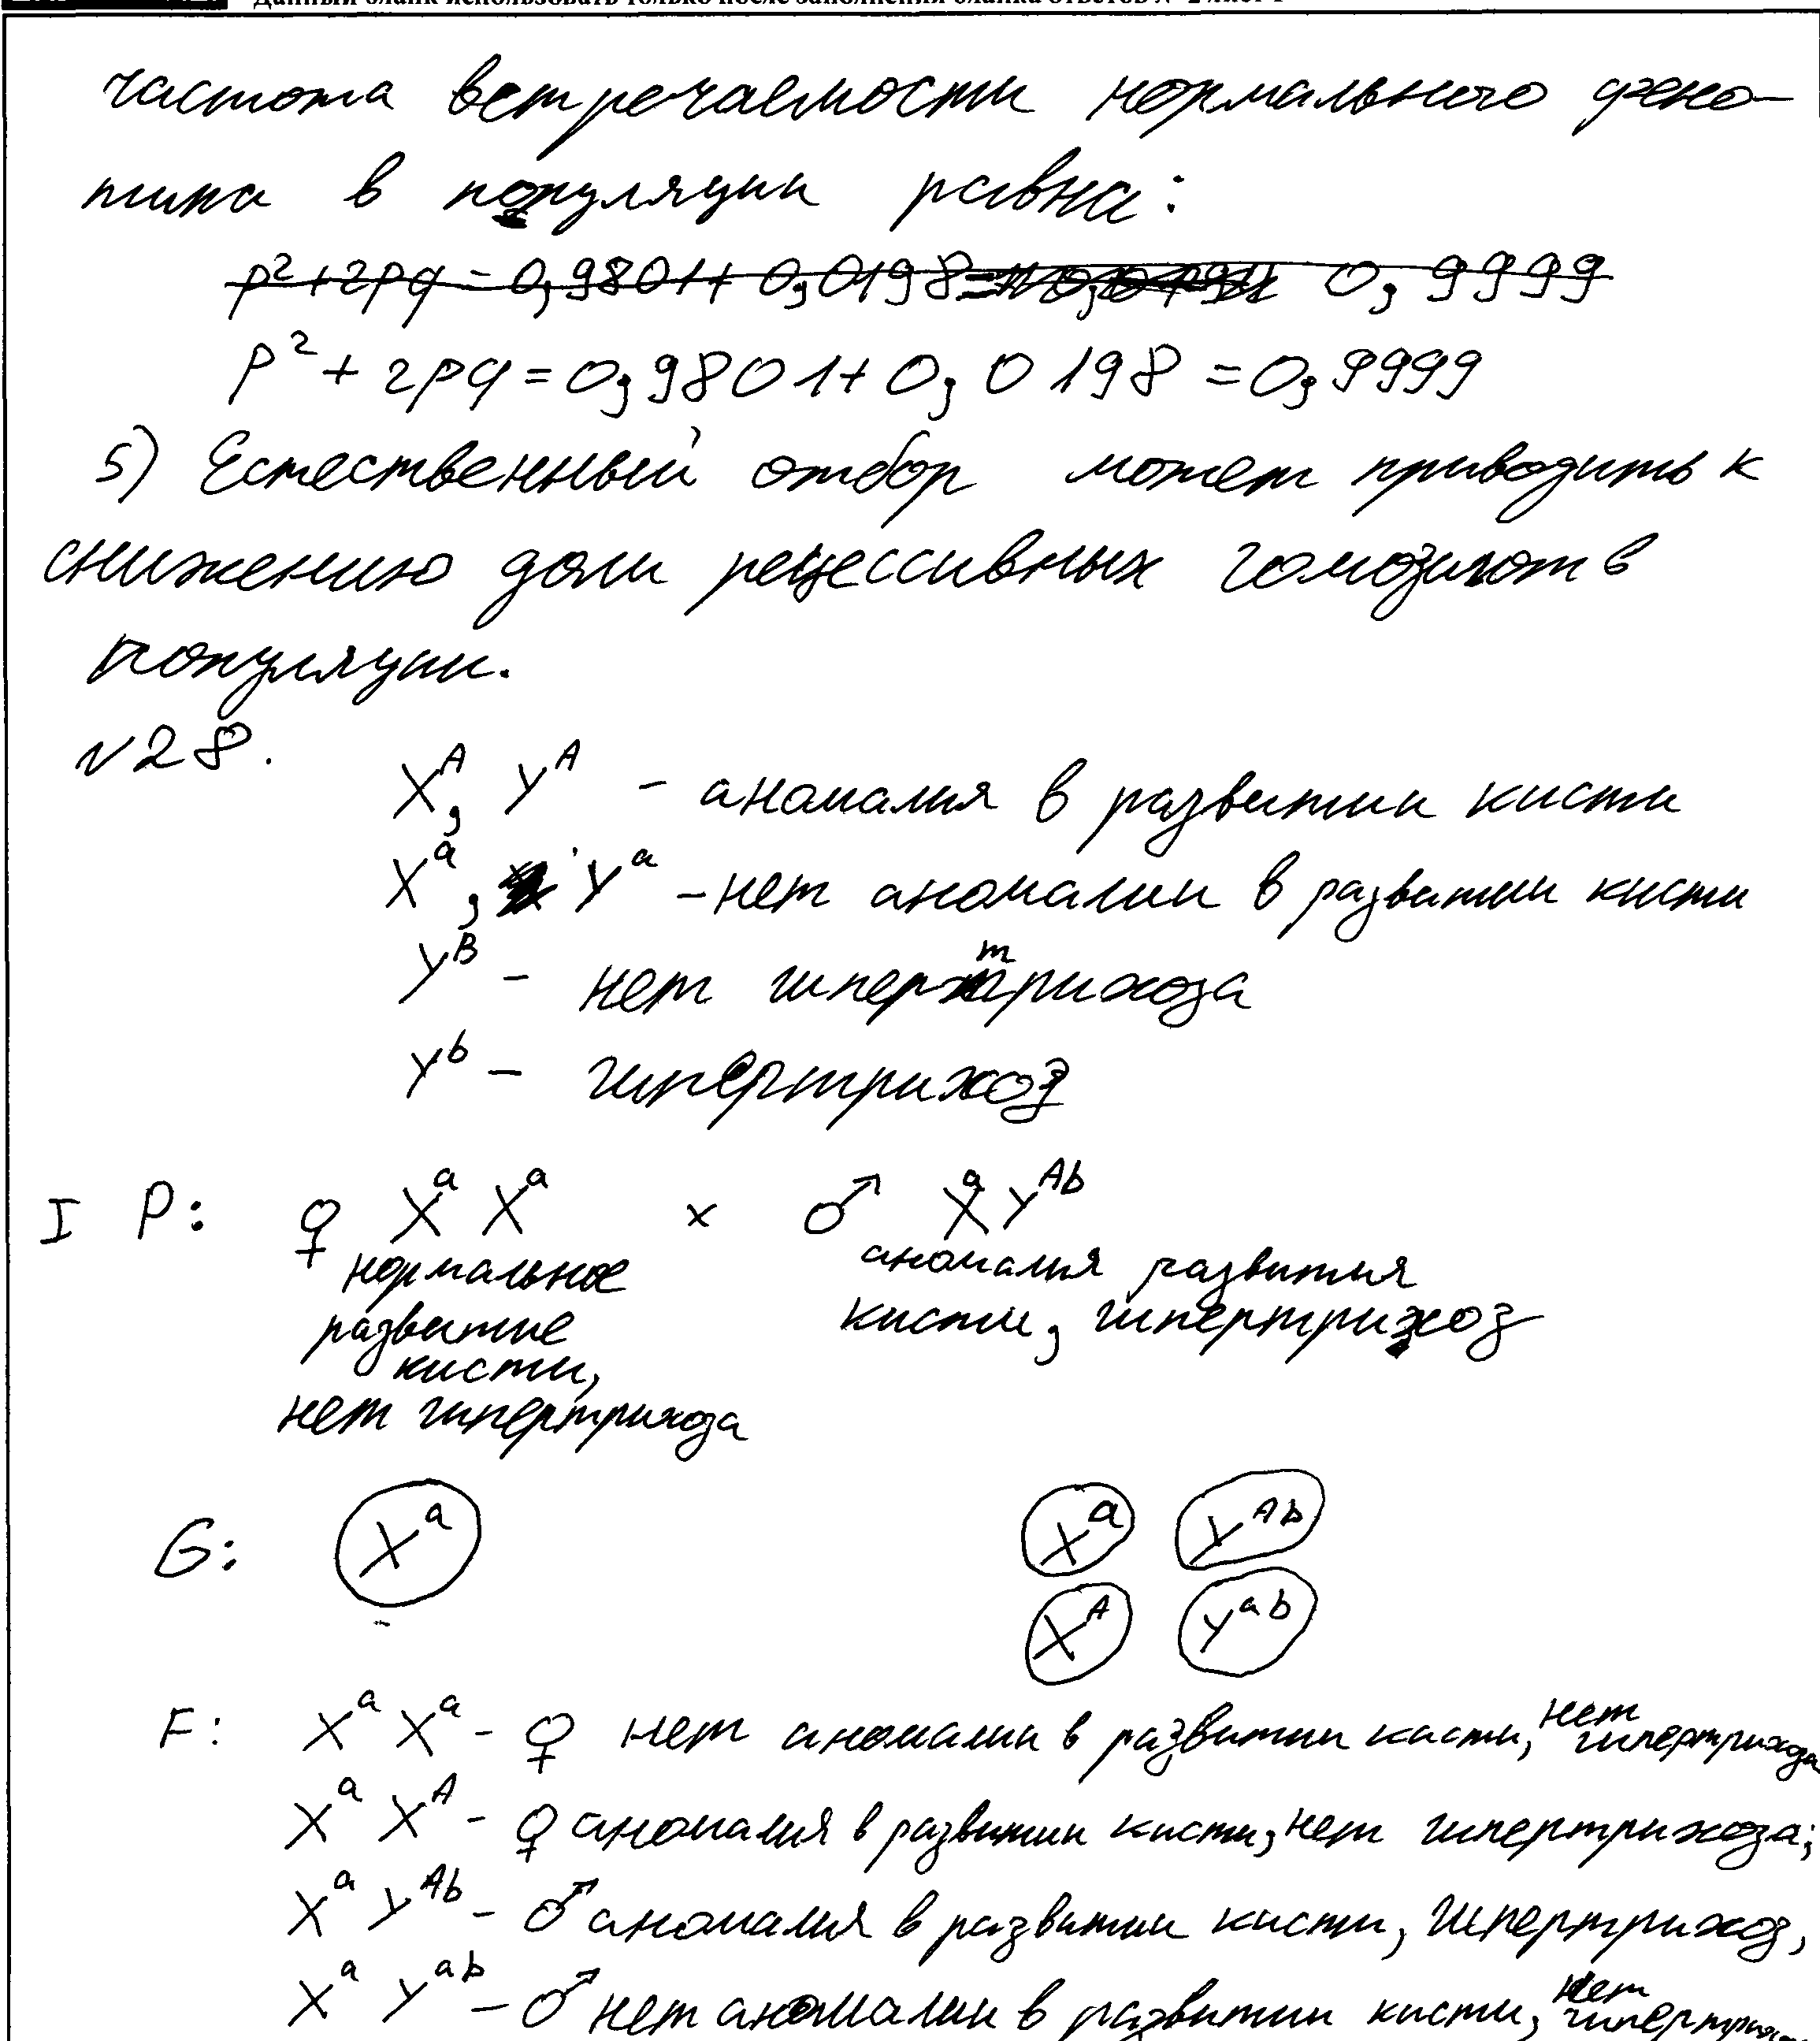 Данный бланк использовать только после заполнения бланка ответов № 2 лист 1
частота встречаемости нормального фено-
типа в популяции равна:
p² + 2pq = 0,9801 + 0,0198 = 0,9999
p² + 2pq = 0,9801 + 0,0198 = 0,9999
5) Естественный отбор может приводить к
снижению доли рецессивных гомозигот в
популяции.
№28.
X^A, Y^A - аномалия в развитии кисти
X^a, Y^a - нет аномалии в развитии кисти
Y^B - нет гипертрихоза
Y^b - гипертрихоз
I P: ♀ X^a X^a × ♂ X^a Y^Ab
нормальное развитие кисти, нет гипертрихоза
аномалия развития кисти, гипертрихоз
G: X^a X^a Y^Ab
X^A Y^ab
F: X^a X^a - ♀ нет аномалии в развитии кисти, нет гипертрихоза
X^a X^A - ♀ аномалия в развитии кисти, нет гипертрихоза;
X^a Y^Ab - ♂ аномалия в развитии кисти, гипертрихоз,
X^a Y^ab - ♂ нет аномалии в развитии кисти, нет